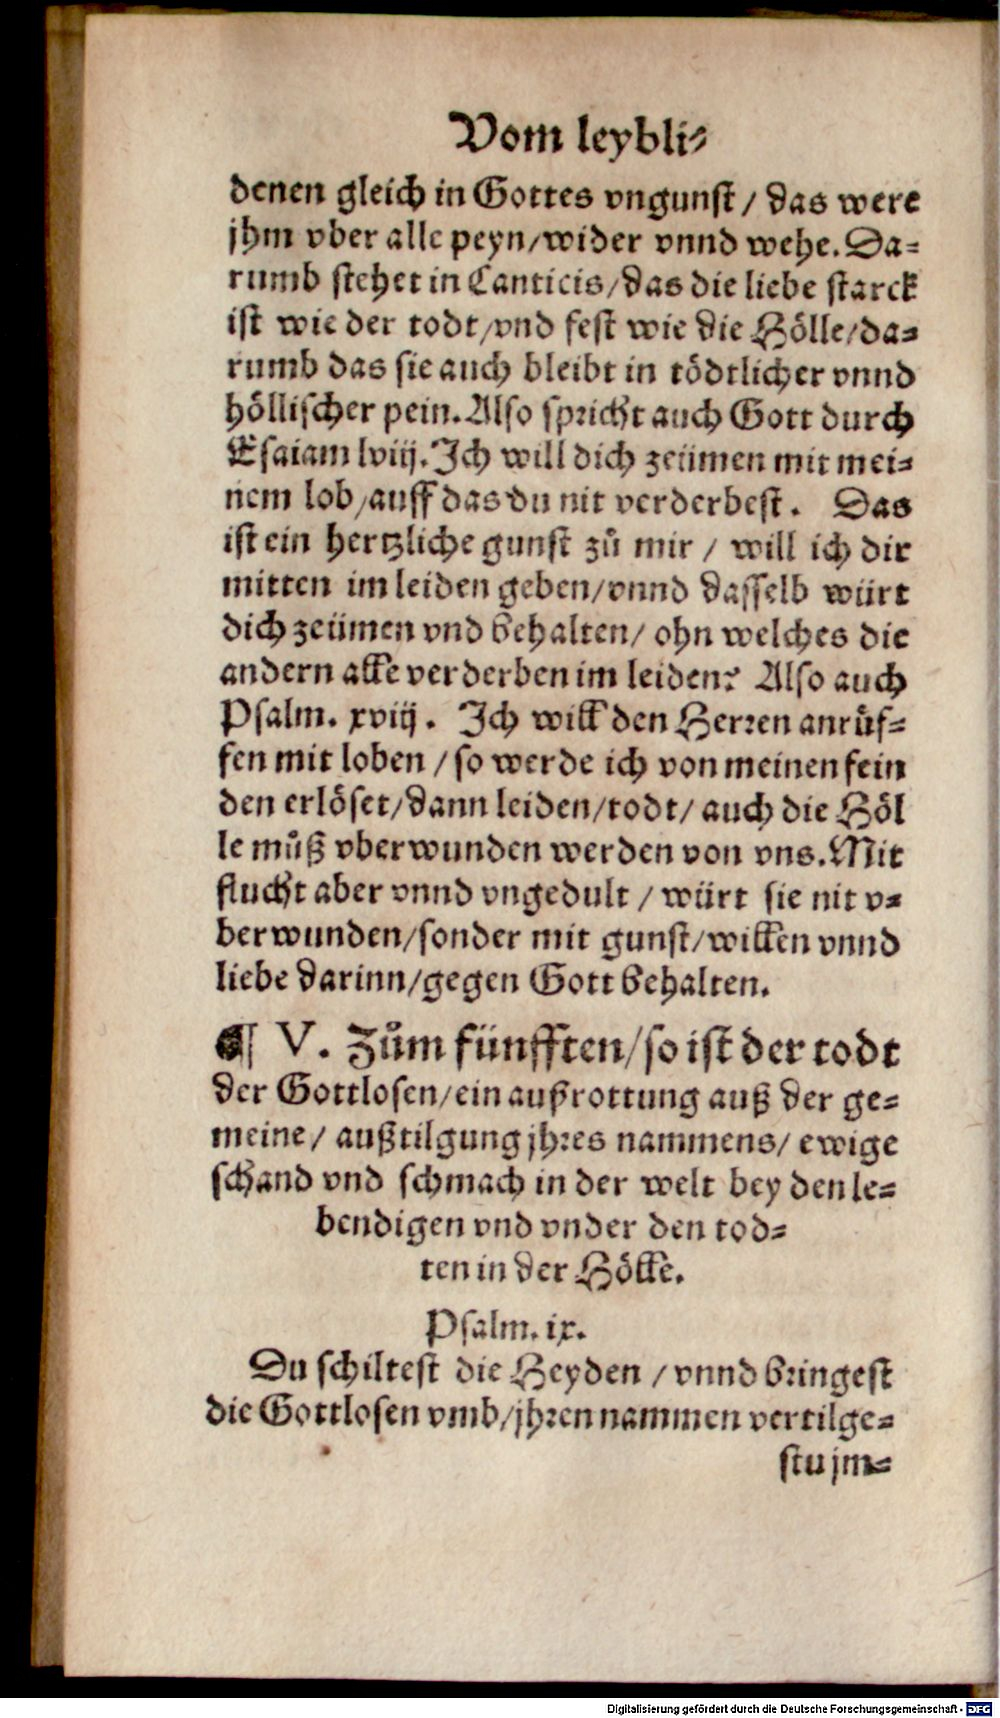 Vom leybli-
denen gleich in Gottes vngunst / das were
jhm vber alle peyn/wider vnnd wehe. Da-
rumb stehet in Canticis/das die liebe starck
ist wie der todt/vnd fest wie die Hölle/da-
rumb das sie auch bleibt in tödtlicher vnnd
höllischer pein. Also spricht auch Gott durch
Esaiam lviij. Ich will dich zeümen mit mei-
nem lob/auff das du nit verderbest. Das
ist ein hertzliche gunst zů mir / will ich dir
mitten im leiden geben/vnnd dasselb würt
dich zeümen vnd behalten/ ohn welches die
andern alle verderben im leiden? Also auch
Psalm. xviij. Ich will den Herren anrůf-
fen mit loben / so werde ich von meinen fein
den erlöset/dann leiden/todt/ auch die Höl
le můß vberwunden werden von vns. Mit
flucht aber vnnd vngedult / würt sie nit v-
berwunden/sonder mit gunst/willen vnnd
liebe darinn/gegen Gott behalten.
¶ V. Zům fünfften/so ist der todt
der Gottlosen/ein außrottung auß der ge-
meine/ außtilgung jhres nammens/ ewige
schand vnd schmach in der welt bey den le-
bendigen vnd vnder den tod-
ten in der Hölle.
Psalm. ix.
Du schiltest die Heyden / vnnd bringest
die Gottlosen vmb/jhren nammen vertilge-
stu jm-
Digitalisierung gefördert durch die Deutsche Forschungsgemeinschaft - DFG